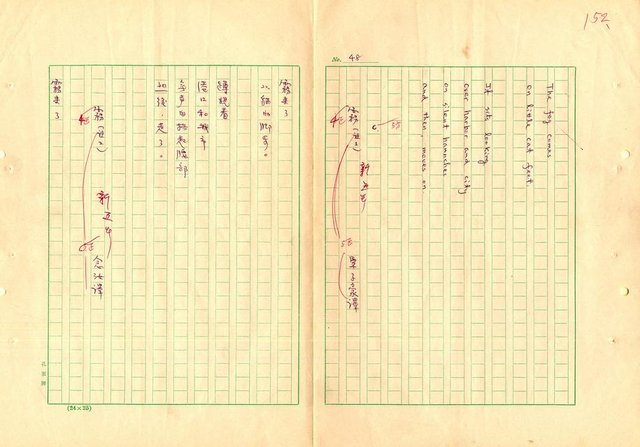 152
No. 48
The fog comes
on little cat feet.
It sits looking
over harbor and city
on silent haunches
and then, moves on.
霧
新五号
譯
霧来了
以貓的脚歩。
蹲視着
港口和城市
无声的拱起腰部
然後,走了。
霧
新五号
念汝譯
霧来了
(24×25)